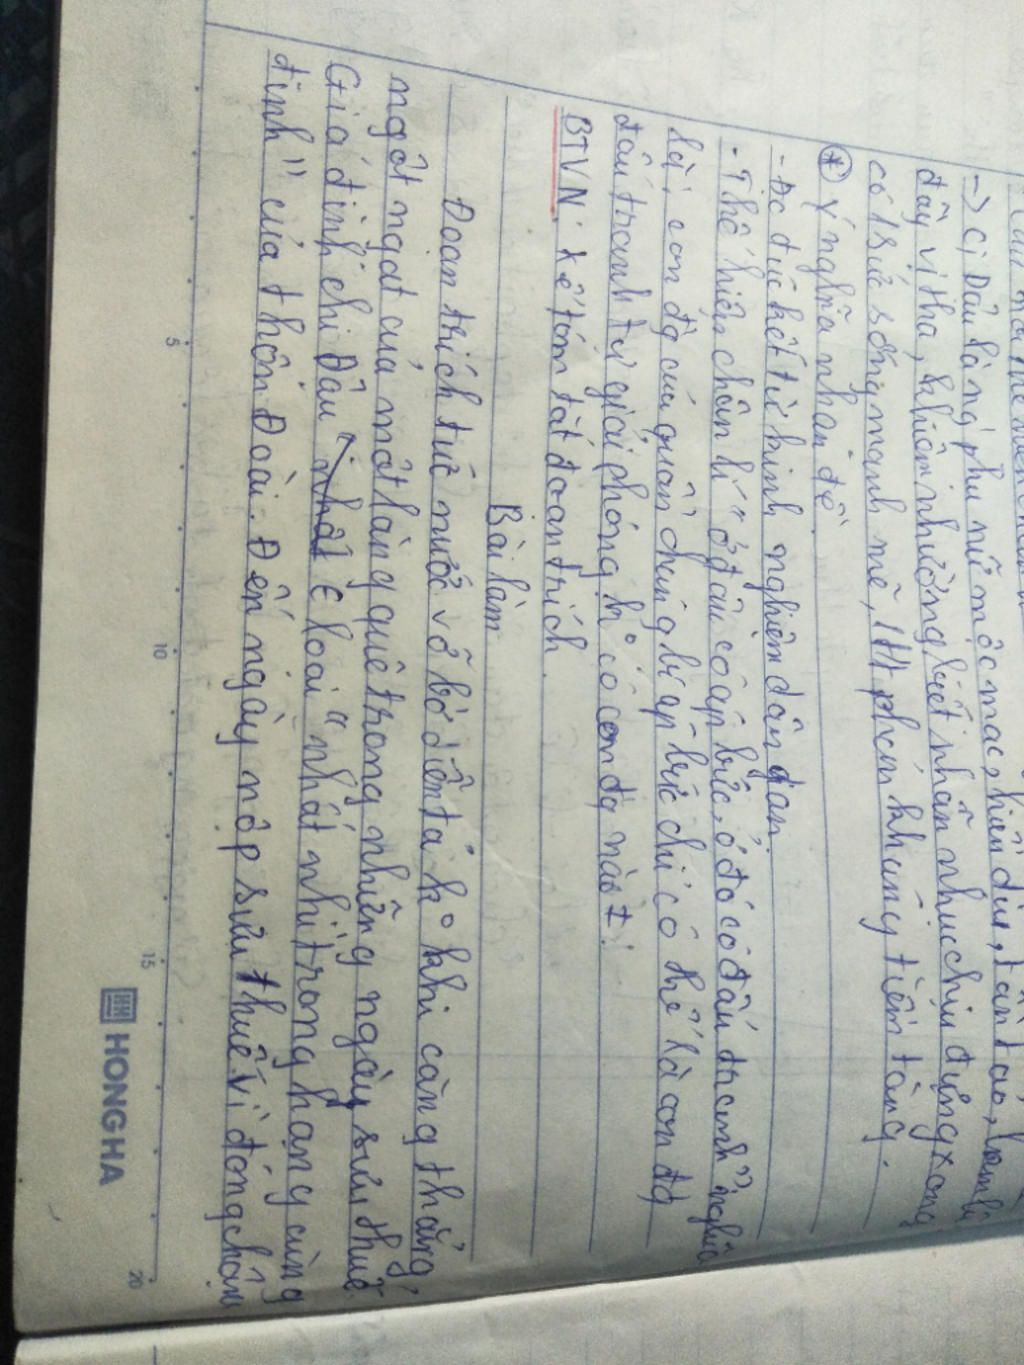 -> Cị Dậu là ng' phụ nữ mộc mạc, hiền dịu,
đầy vị tha, khiêm nhường biết nhẫn nhục chịu đựng xong
có 1 sức sống mạnh mẽ, 1 phản kháng tiềm tàng.
* Ý nghĩa nhan đề.
- Đc đúc kết từ kinh nghiệm dân gian.
- Thể hiện chân lí "ở đâu có áp bức, ở đó có đấu tranh" nghĩa
là, con đg của quần chúng bị áp bức chỉ có thể là con đg
đấu tranh tự giải phóng, ko có con đg nào ≠.
BTVN: Kể tóm tắt đoạn trích.
Bài làm
Đoạn trích tức nước vỡ bờ diễn tả ko khi căng thẳng,
ngột ngạt của một làng quê trong những ngày sưu thuế
Gia đình chị Dậu loại "nhất nhì trong hạng cùng
đinh" của thôn Đoài. Đến ngày nộp sưu thuế vì đóng chậm
5
10
15
20
HONG HA